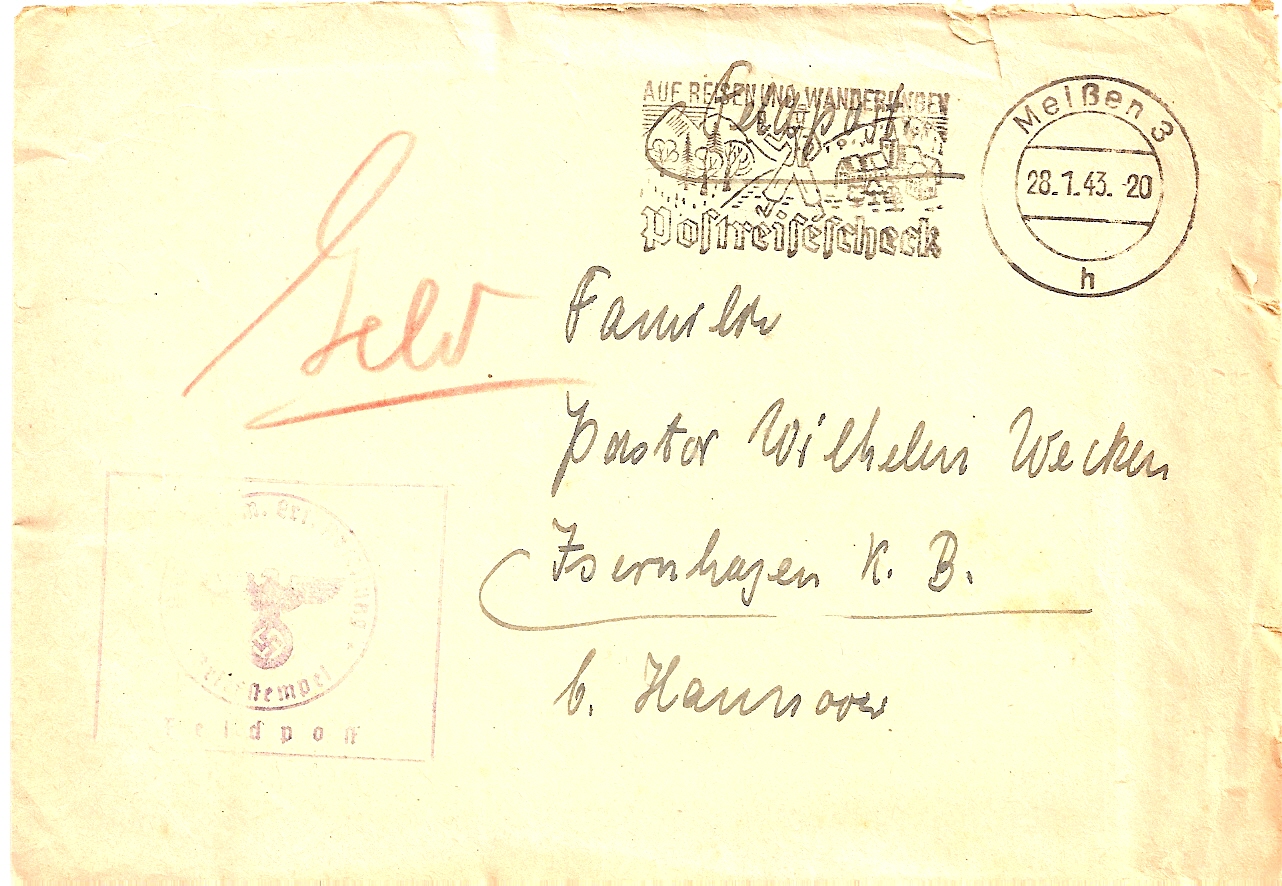 AUF REISEN UND WANDERUNGEN
Feldpost
Postreisescheck
Meißen 3
28.1.43.-20
h
Geld
Familie
Pastor Wilhelm Wecken
Isernhagen K. B.
b. Hannover
Briefstempel
Feldpost